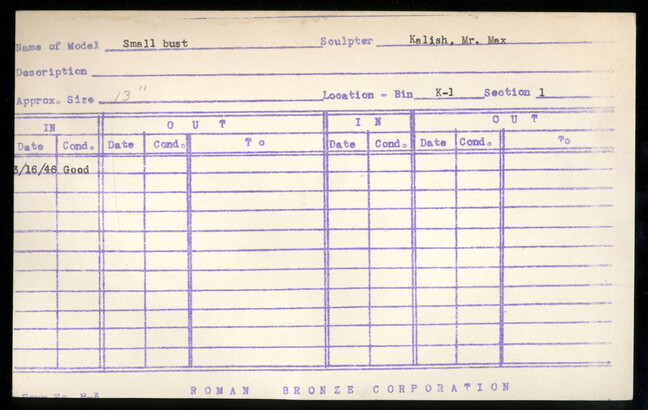 Name of Model Small bust Sculptor Kalish, Mr. Max
Description
Approx. Size 13" Location - Bin K-1 Section 1
IN OUT IN OUT
Date Cond. Date Cond. To Date Cond. Date Cond. To
3/16/46 Good
ROMAN BRONZE CORPORATION